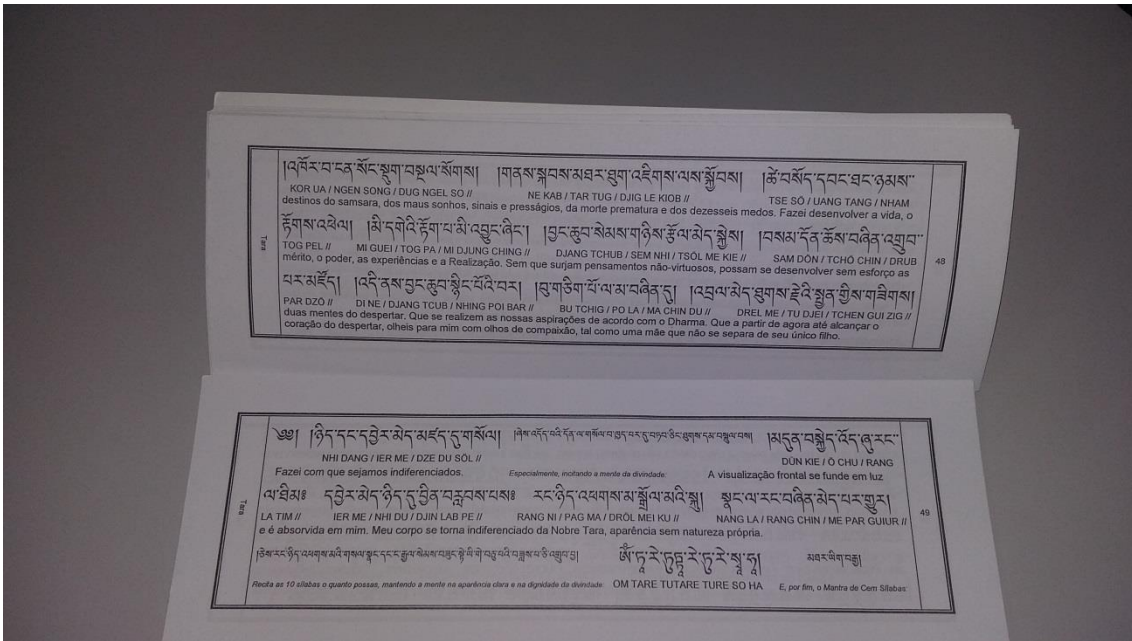 །འཁོར་བ་ངན་སོང་སྡུག་བསྔལ་སོགས། །གནས་སྐབས་མཐར་ཐུག་འཇིགས་ལས་སྐྱོབས། །ཚེ་བསོད་དབང་ཐང་ཉམས་
KOR UA / NGEN SONG / DUG NGEL SO // NE KAB / TAR TUG / DJIG LE KIOB // TSE SÖ / UANG TANG / NHAM
destinos do samsara, dos maus sonhos, sinais e presságios, da morte prematura e dos dezesseis medos. Fazei desenvolver a vida, o
Tara
རྟོགས་འཕེལ། །མི་དགེའི་རྟོག་པ་མི་འབྱུང་ཞིང་། །བྱང་ཆུབ་སེམས་གཉིས་རྩོལ་མེད་སྐྱེས། །བསམ་དོན་ཆོས་བཞིན་འགྲུབ་
48
TOG PEL // MI GUEI / TOG PA / MI DJUNG CHING // DJANG TCHUB / SEM NHI / TSÖL ME KIE // SAM DÖN / TCHÖ CHIN / DRUB
mérito, o poder, as experiências e a Realização. Sem que surjam pensamentos não-virtuosos, possam se desenvolver sem esforço as
པར་མཛོད། །འདི་ནས་བྱང་ཆུབ་སྙིང་པོའི་བར། །བུ་གཅིག་པོ་ལ་མ་བཞིན་དུ། །འབྲལ་མེད་ཐུགས་རྗེའི་སྤྱན་གྱིས་གཟིགས།
PAR DZÖ // DI NE / DJANG TCUB / NHING POI BAR // BU TCHIG / PO LA / MA CHIN DU // DREL ME / TU DJEI / TCHEN GUI ZIG //
duas mentes do despertar. Que se realizem as nossas aspirações de acordo com o Dharma. Que a partir de agora até alcançar o
coração do despertar, olheis para mim com olhos de compaixão, tal como uma mãe que não se separa de seu único filho.
༄༅། །ཉིད་དང་དབྱེར་མེད་མཛད་དུ་གསོལ། །ཞེས་འདོད་པའི་དོན་ལ་གསོལ་བ་ཁྱད་པར་དུ་བཏབ་ཅིང་ཐུགས་དམ་བསྐུལ་བས། །མདུན་བསྐྱེད་འོད་ཞུ་རང་
NHI DANG / IER ME / DZE DU SÖL // DÜN KIE / Ö CHU / RANG
Fazei com que sejamos indiferenciados. Especialmente, incitando a mente da divindade: A visualização frontal se funde em luz
Tara
ལ་ཐིམ༔ དབྱེར་མེད་ཉིད་དུ་བྱིན་བརླབས་པས༔ རང་ཉིད་འཕགས་མ་སྒྲོལ་མའི་སྐུ། སྣང་ལ་རང་བཞིན་མེད་པར་གྱུར།
49
LA TIM // IER ME / NHI DU / DJIN LAB PE // RANG NI / PAG MA / DRÖL MEI KU // NANG LA / RANG CHIN / ME PAR GUIUR //
e é absorvida em mim. Meu corpo se torna indiferenciado da Nobre Tara, aparência sem natureza própria.
ཨོཾ་ཏཱ་རེ་ཏུཏྟཱ་རེ་ཏུ་རེ་སྭཱ་ཧཱ། མཐར་ཡིག་བརྒྱ།
Recita as 10 sílabas o quanto possas, mantendo a mente na aparência clara e na dignidade da divindade: OM TARE TUTARE TURE SO HA E, por fim, o Mantra de Cem Sílabas: